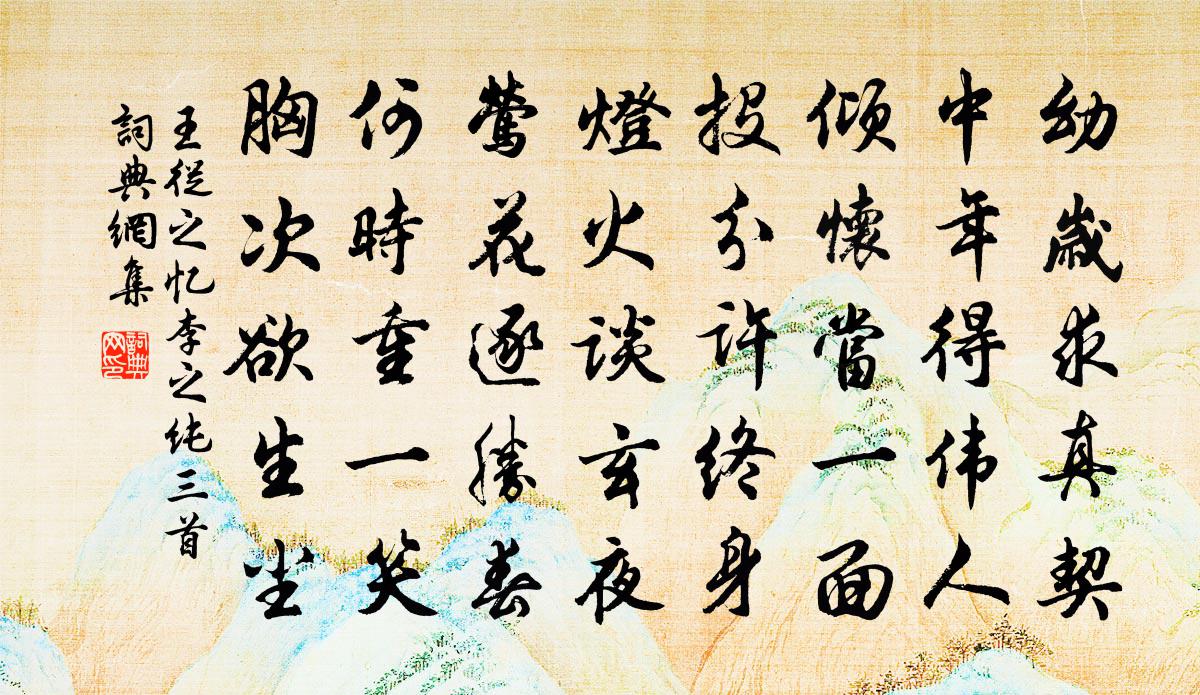 幼歲求真契
中年得伟人
傾懷當一面
投分許終身
燈火談玄夜
鶯花逐勝春
何時重一笑
胸次欲生塵
王從之忆李之纯三首
詞典網集
詞典
网印